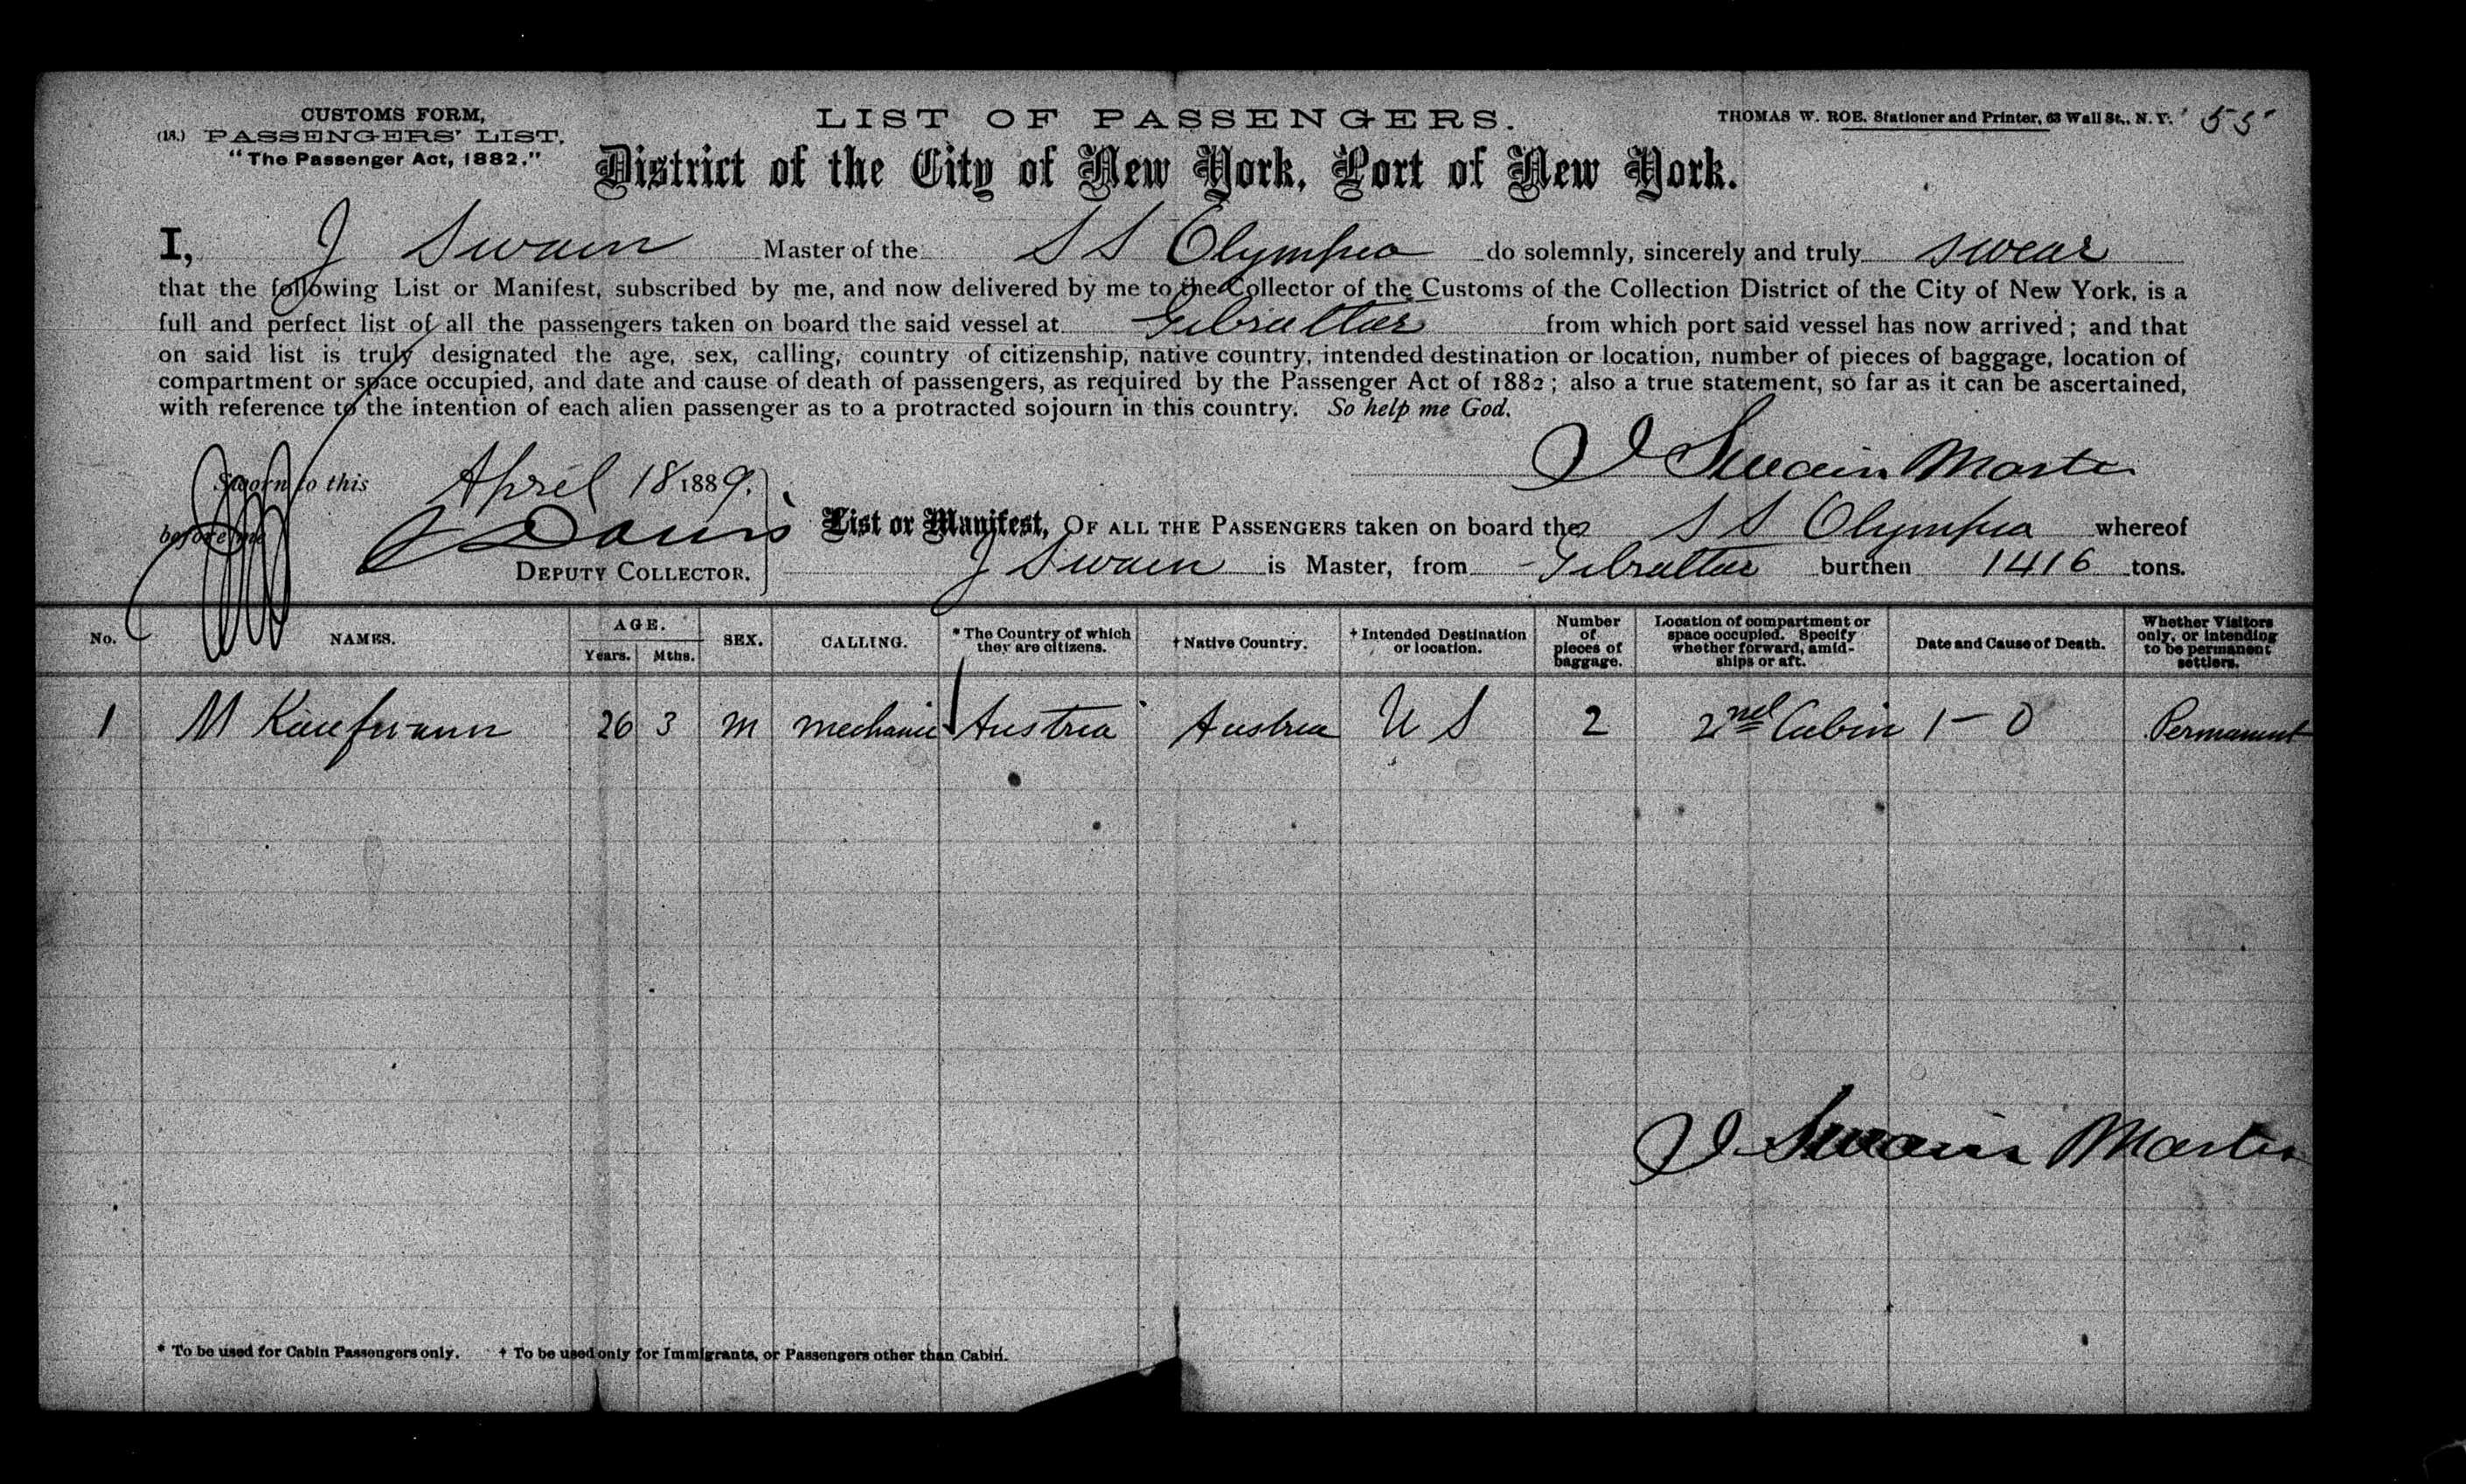 CUSTOMS FORM,
(18.) PASSENGERS' LIST.
"The Passenger Act, 1882."
LIST OF PASSENGERS.
THOMAS W. ROE, Stationer and Printer, 63 Wall St., N. Y. 55
District of the City of New York, Port of New York.
I, J Swain Master of the S S Olympia do solemnly, sincerely and truly swear
that the following List or Manifest, subscribed by me, and now delivered by me to the Collector of the Customs of the Collection District of the City of New York, is a
full and perfect list of all the passengers taken on board the said vessel at Gibraltar from which port said vessel has now arrived; and that
on said list is truly designated the age, sex, calling, country of citizenship, native country, intended destination or location, number of pieces of baggage, location of
compartment or space occupied, and date and cause of death of passengers, as required by the Passenger Act of 1882; also a true statement, so far as it can be ascertained,
with reference to the intention of each alien passenger as to a protracted sojourn in this country. So help me God.
J Swain Master
Sworn to this April 18 1889.
before me Davis
DEPUTY COLLECTOR.
List or Manifest, OF ALL THE PASSENGERS taken on board the S S Olympia whereof
J Swain is Master, from Gibraltar burthen 1416 tons.
No. NAMES. AGE. Years. Mths. SEX. CALLING. * The Country of which they are citizens. † Native Country. † Intended Destination or location. Number of pieces of baggage. Location of compartment or space occupied. Specify whether forward, amidships or aft. Date and Cause of Death. Whether Visitors only, or intending to be permanent settlers.
1 M Kaufmann 26 3 M Mechanic Austria Austria U S 2 2nd Cabin 1 - 0 Permanent
J Swain Master
* To be used for Cabin Passengers only. † To be used only for Immigrants, or Passengers other than Cabin.